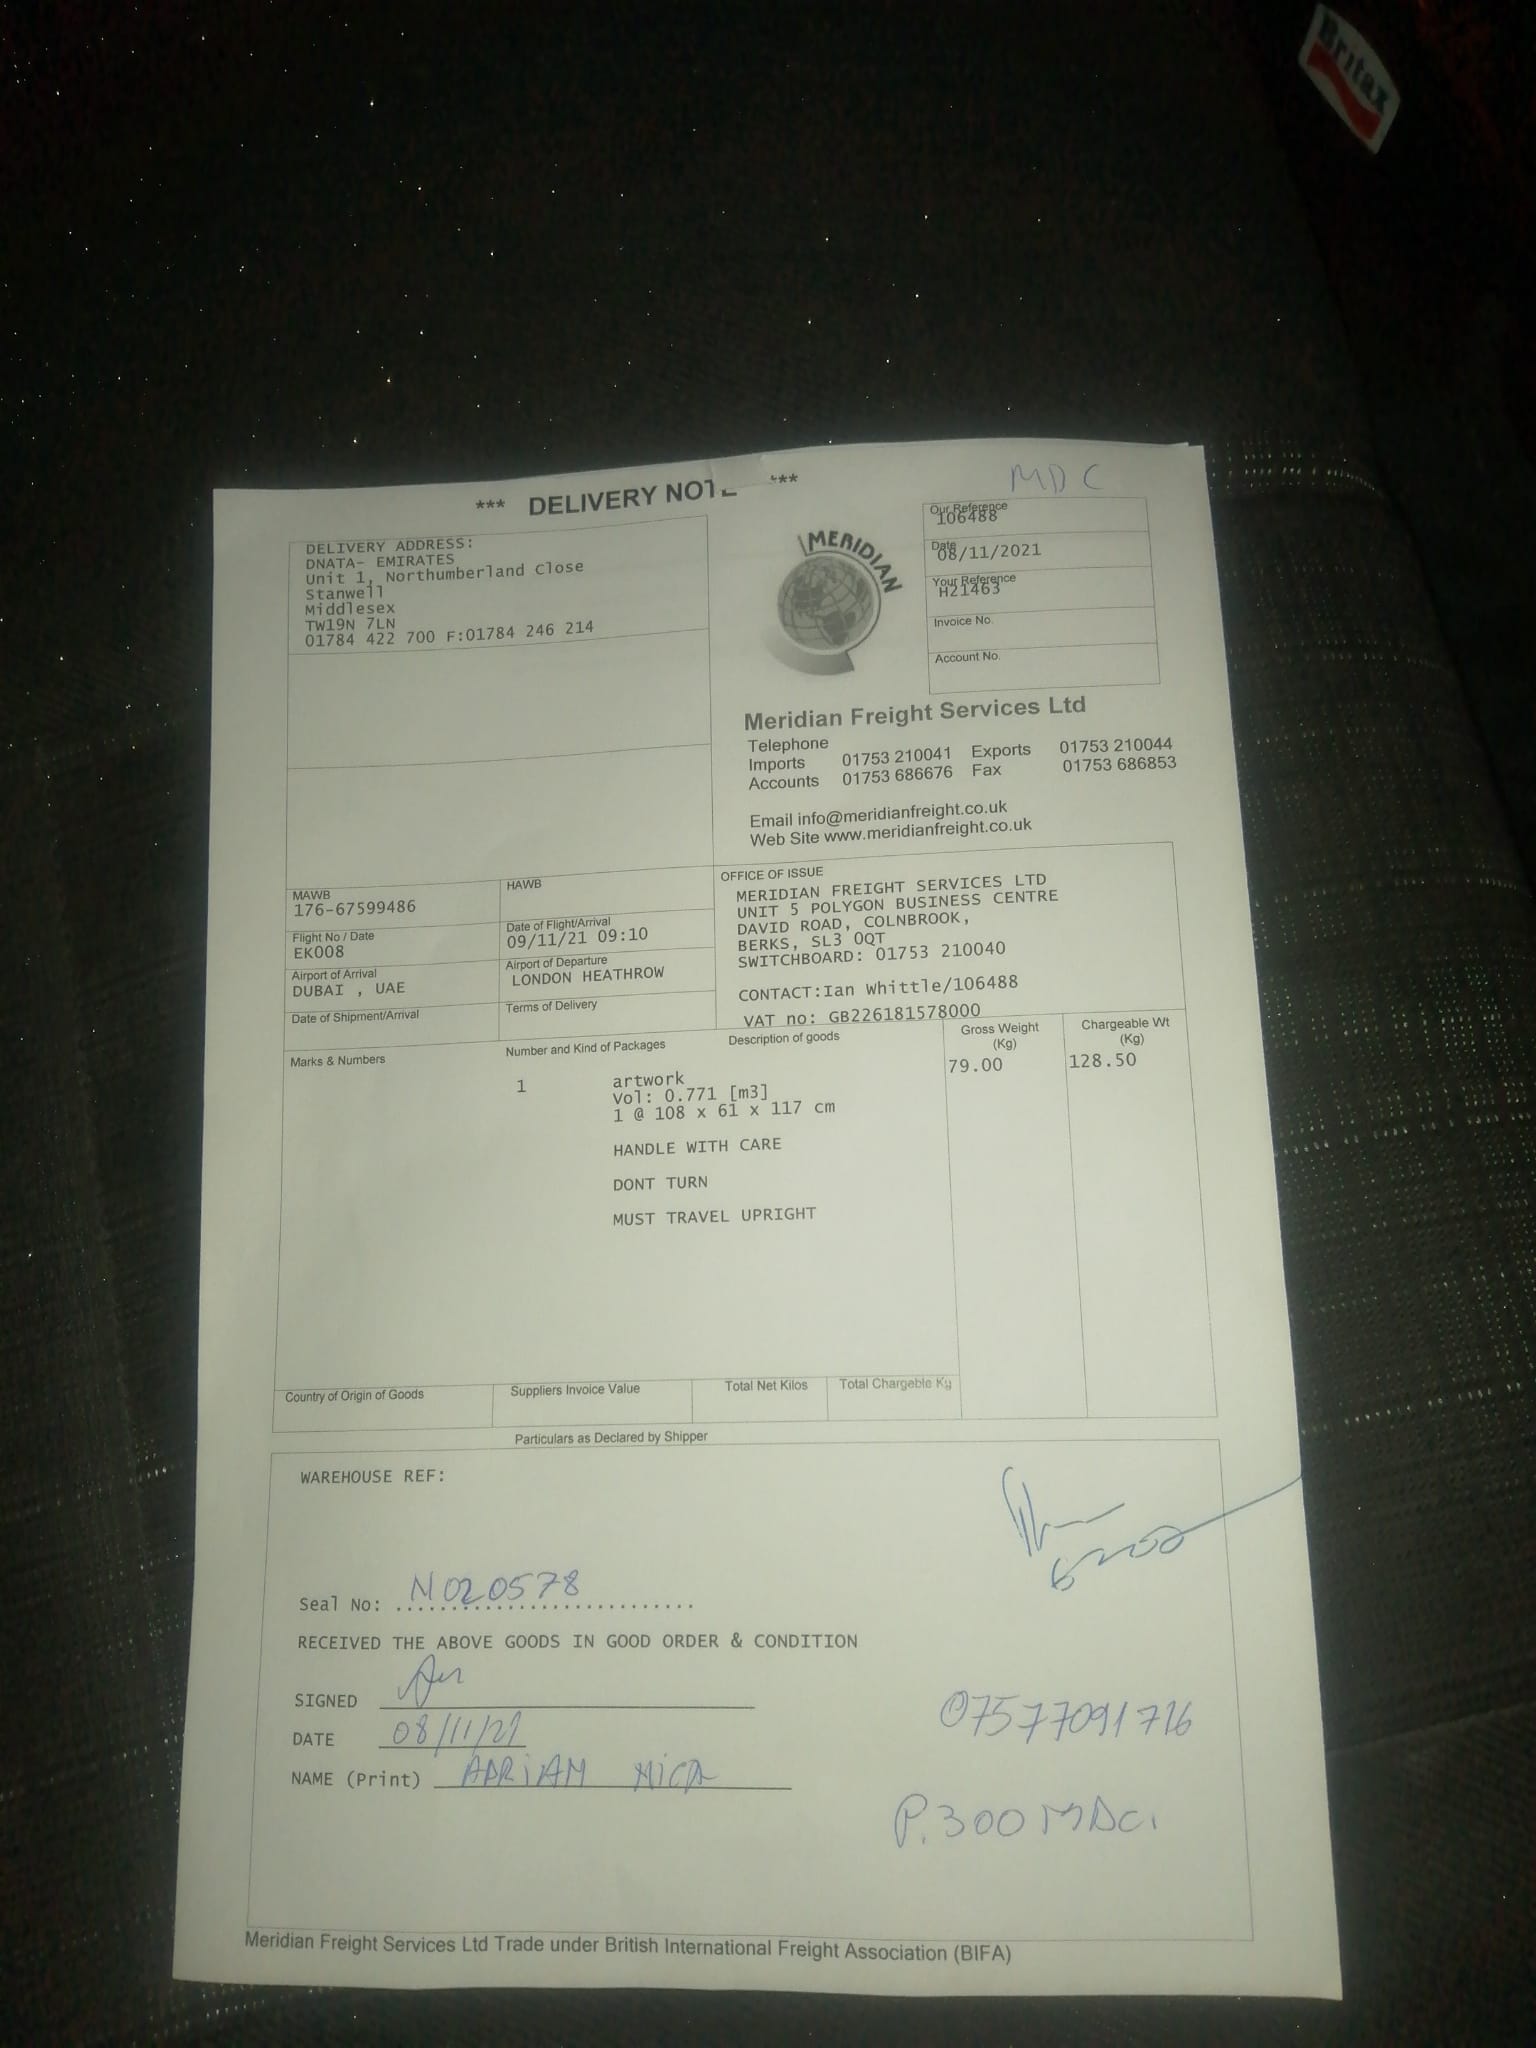 Britax
*** DELIVERY NOTE ***
MDC
DELIVERY ADDRESS:
DNATA- EMIRATES
Unit 1, Northumberland Close
Stanwell
Middlesex
TW19N 7LN
01784 422 700 F:01784 246 214
MERIDIAN
Our Reference
106488
Date
08/11/2021
Your Reference
H21463
Invoice No.
Account No.
Meridian Freight Services Ltd
Telephone
Imports 01753 210041 Exports 01753 210044
Accounts 01753 686676 Fax 01753 686853
Email info@meridianfreight.co.uk
Web Site www.meridianfreight.co.uk
MAWB
176-67599486
HAWB
Flight No / Date
EK008
Date of Flight/Arrival
09/11/21 09:10
Airport of Arrival
DUBAI , UAE
Airport of Departure
LONDON HEATHROW
Date of Shipment/Arrival
Terms of Delivery
OFFICE OF ISSUE
MERIDIAN FREIGHT SERVICES LTD
UNIT 5 POLYGON BUSINESS CENTRE
DAVID ROAD, COLNBROOK,
BERKS, SL3 0QT
SWITCHBOARD: 01753 210040
CONTACT:Ian Whittle/106488
VAT no: GB226181578000
Marks & Numbers
Number and Kind of Packages
Description of goods
Gross Weight
(Kg)
Chargeable Wt
(Kg)
1
artwork
79.00
128.50
Vol: 0.771 [m3]
1 @ 108 x 61 x 117 cm
HANDLE WITH CARE
DONT TURN
MUST TRAVEL UPRIGHT
Country of Origin of Goods
Suppliers Invoice Value
Total Net Kilos
Total Chargeble Kg
Particulars as Declared by Shipper
WAREHOUSE REF:
Seal No: N020578
RECEIVED THE ABOVE GOODS IN GOOD ORDER & CONDITION
SIGNED
DATE 08/11/21
NAME (Print) ADRIAM MICA
07577091716
P.300 MDC.
Meridian Freight Services Ltd Trade under British International Freight Association (BIFA)